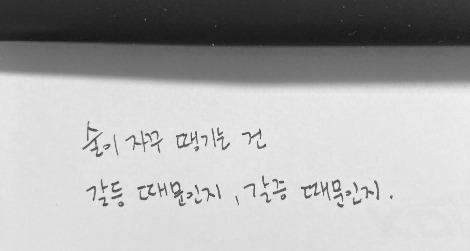 술이 자꾸 땡기는 건
갈등 때문인지, 갈증 때문인지.